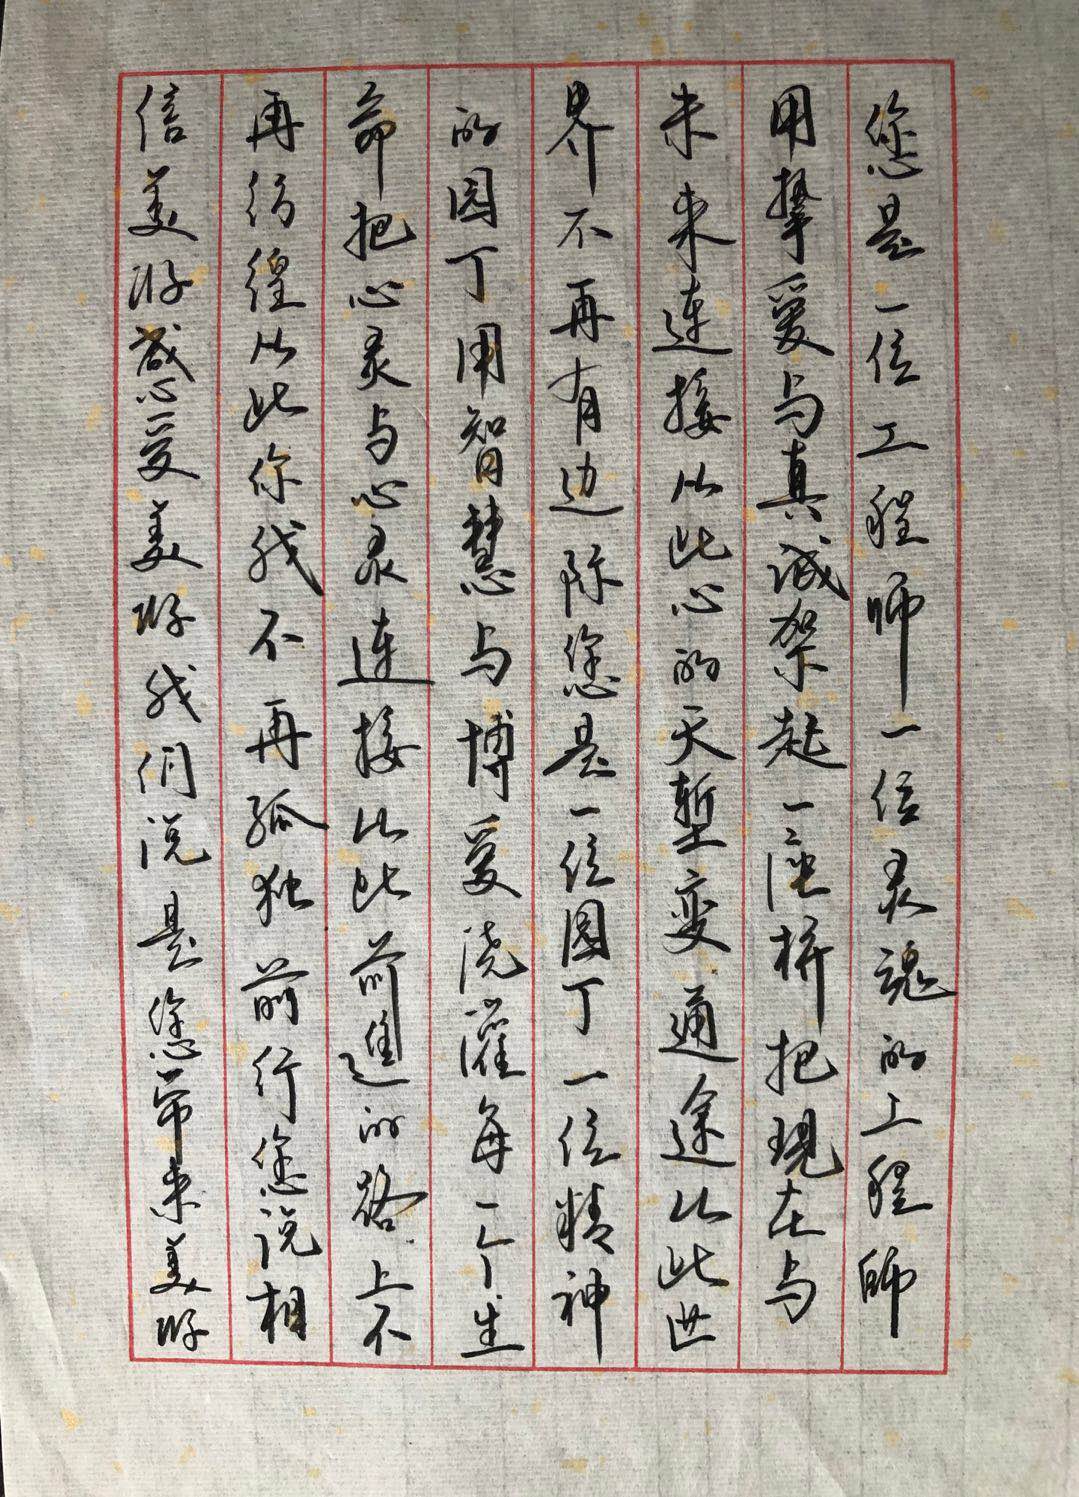 您是一位工程师一位灵魂的工程师
用挚爱与真诚架起一座桥把现在与
未来连接从此心的天堑变通途从此世
界不再有边际您是一位园丁一位精神
的园丁用智慧与博爱浇灌每一个生
命把心灵与心灵连接从此前进的路上不
再彷徨从此你我不再孤独前行您说相
信美好感受美好我们说是您带来美好